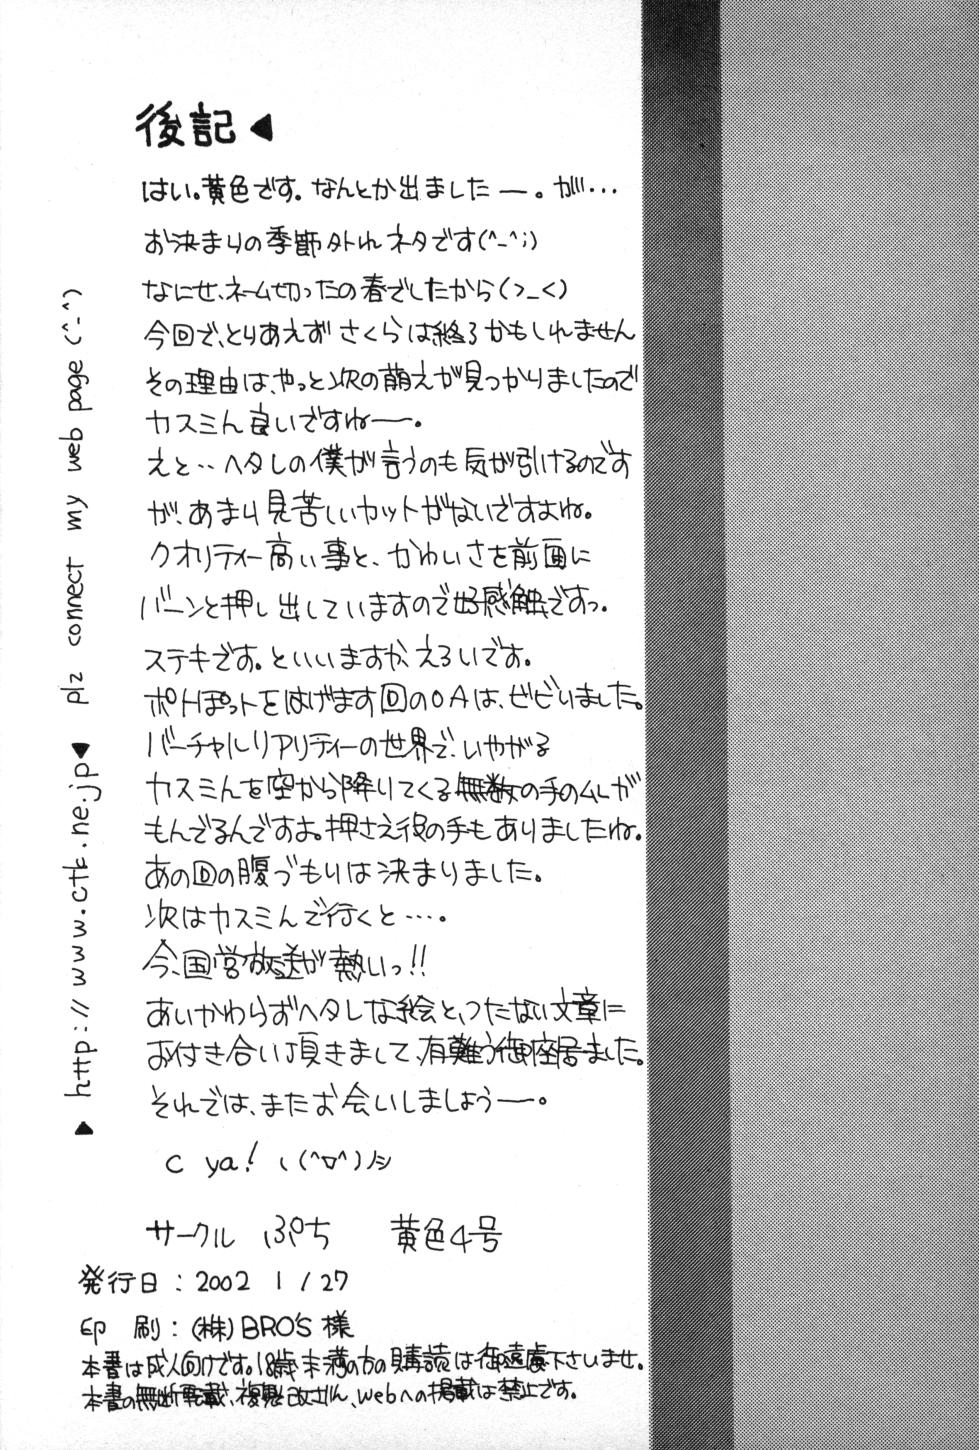 後記◀
はい。黄色です。なんとか出ましたー。が…
お決まりの季節外れネタです(^-^;)
なにせ、ネーム切ったの春でしたから(>_<)
今回で、とりあえずさくらは終るかもしれません
その理由は、やっと次の萌えが見つかりましたので
カスミん良いですねー。
えと‥ヘタレの僕が言うのも気が引けるのです
が、あまり見苦しいカットがないですよね。
クオリティー高い事と、かわいさを前面に
バーンと押し出していますので好感触ですっ。
ステキです。といいますか、えろいです。
ポトぽっトをはげます回のOAは、ビビりました。
バーチャルリアリティーの世界で、いやがる
カスミんを空から降りてくる無数の手のムレが
もんでるんですよ。押さえ役の手もありましたね。
あの回の腹づもりは決まりました。
次はカスミんで行くと…。
今、国営放送が熱いっ!!
あいかわらずヘタレな絵と、つたない文章に
お付き合い頂きまして、有難う御座居ました。
それでは、またお会いしましょうー。
C ya! ヽ(^▽^)ノシ
サークル ぷち 黄色4号
発行日：2002 1/27
印 刷：(株)BRO'S 様
本書は成人向けです。18歳未満の方の購読は御遠慮下さいませ。
本書の無断転載、複製、改ざん、webへの掲載は禁止です。
▲ http://www.ctk.ne.jp ▼ plz connect my web page (^-^)